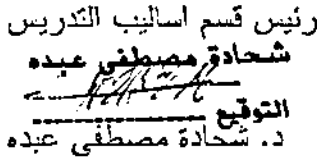 رئيس قسم اساليب التدريس
شحادة مصطفى عبده
التوقيع
د. شحادة مصطفى عبده